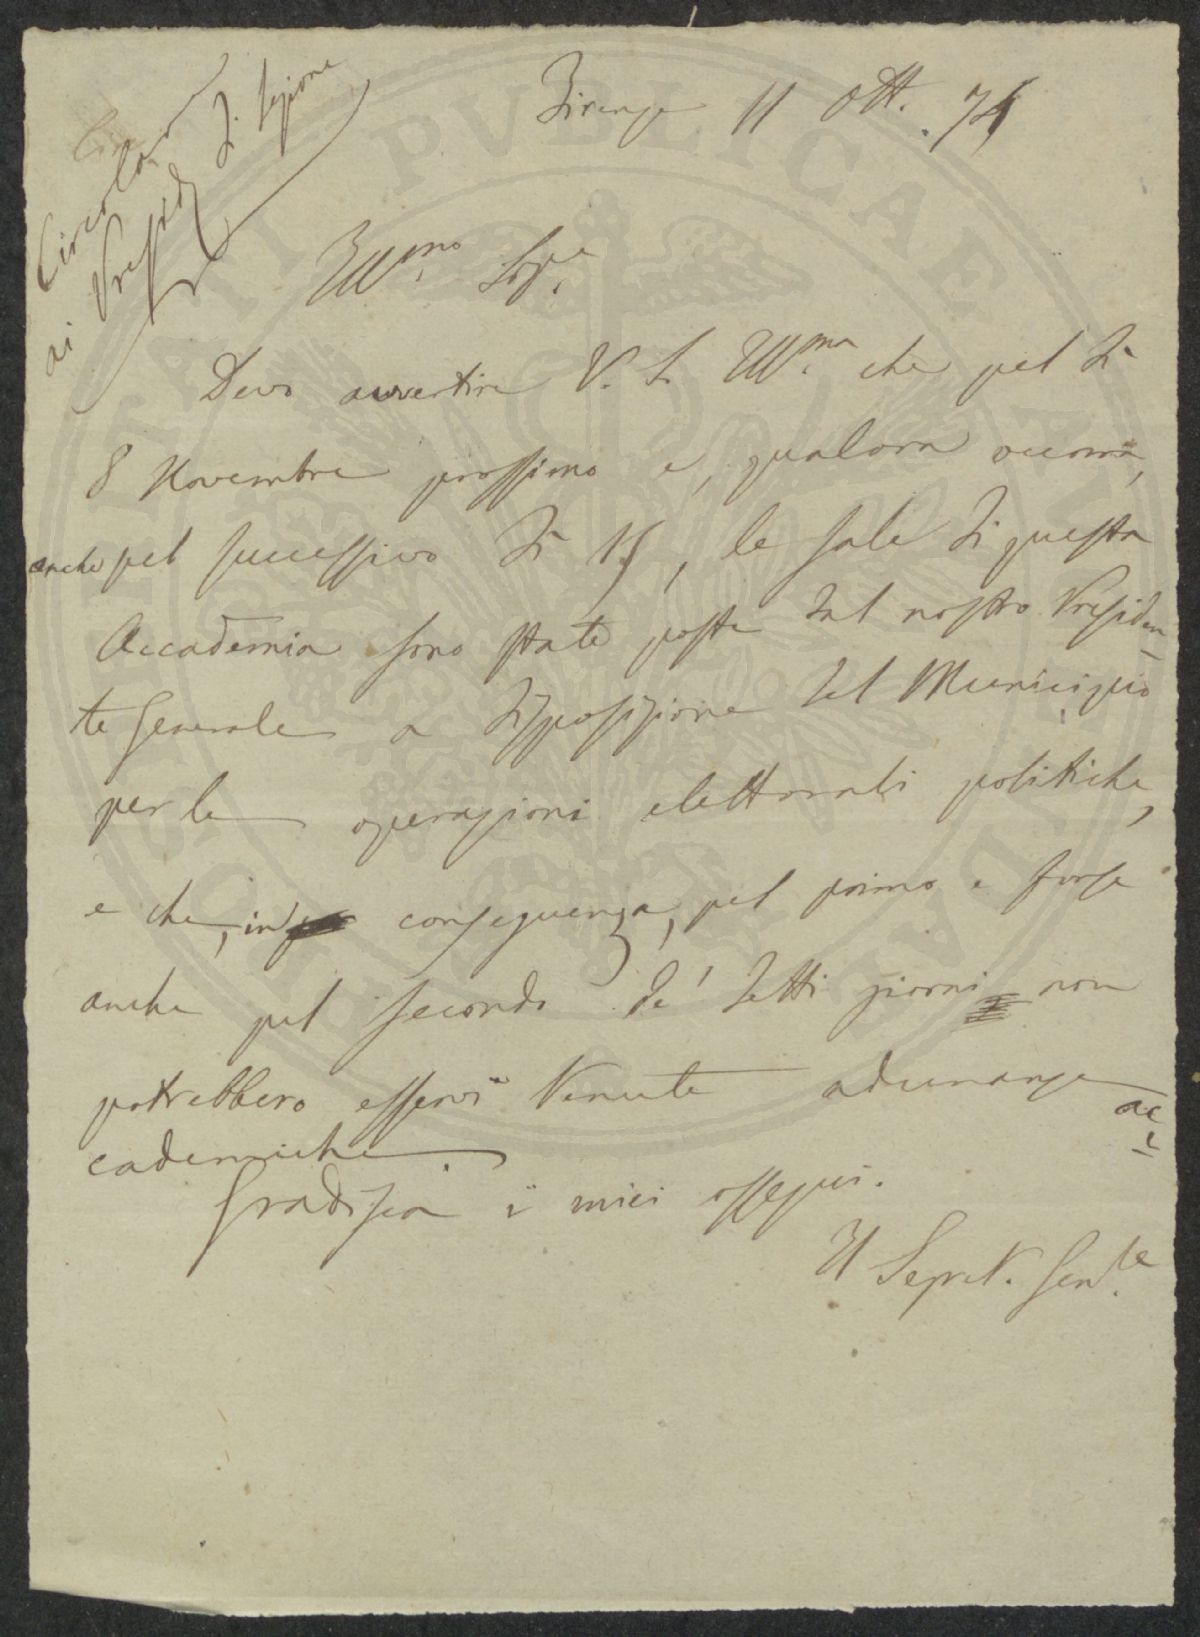 Circolare
ai Presid. di Sezione
Firenze 11 Ott. 74
Ill.mo Sig.e
Devo avvertire V. S. Ill.ma che pel dì
8 Novembre prossimo e, qualora occorra,
anche pel successivo dì 15, le sale di questa
Accademia sono state poste dal nostro Presiden-
te Generale a disposizione del Municipio
per le operazioni elettorali politiche,
e che, in conseguenza, pel primo e forse
anche pel secondo de' detti giorni non
potrebbero esservi tenute adunanze ac-
cademiche
Gradisca i miei ossequi.
Il Segret. Gen.le